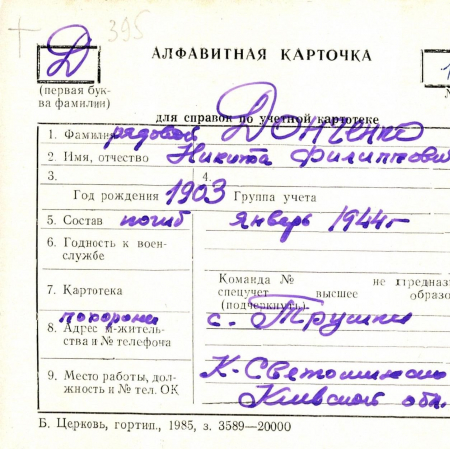 395
Д
АЛФАВИТНАЯ КАРТОЧКА
(первая бук-
ва фамилии)
для справок по учетной картотеке
1. Фамилия рядовой Донченко
2. Имя, отчество Никита Филиппович
3. 4.
Год рождения 1903 Группа учета
5. Состав погиб январь 1944г
6. Годность к воен-
службе
Команда № не предназ
спецучет высшее образо
(подчеркнуть)
7. Картотека
похорони с. Трушки
8. Адрес м-житель-
ства и № телефона
К-Святошинско
9. Место работы, дол-
жность и № тел. ОК
Киевской обл.
Б. Церковь, гортип., 1985, з. 3589—20000